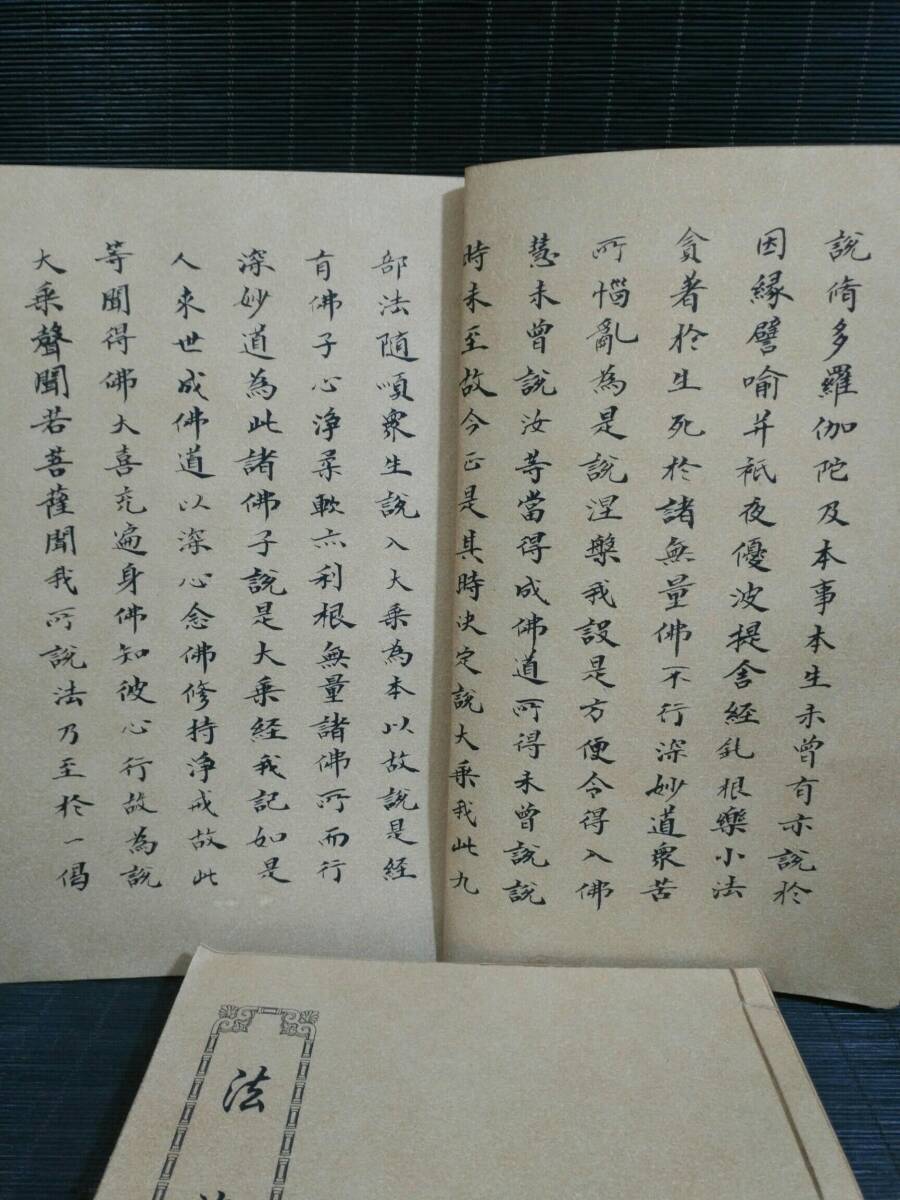 說脩多羅伽陀及本事本生未曾有亦說於
因緣譬喻并祇夜優波提舍經鈍根樂小法
貪著於生死於諸無量佛不行深妙道衆苦
所惱亂為是說涅槃我設是方便令得入佛
慧未曾說汝等當得成佛道所得未曾說說
時未至故今正是其時决定說大乘我此九
部法隨順衆生說入大乘為本以故說是經
有佛子心淨柔軟亦利根無量諸佛所而行
深妙道為此諸佛子說是大乘經我記如是
人来世成佛道以深心念佛修持淨戒故此
等聞得佛大喜充遍身佛知彼心行故為說
大乘聲聞若菩薩聞我所說法乃至於一偈
法